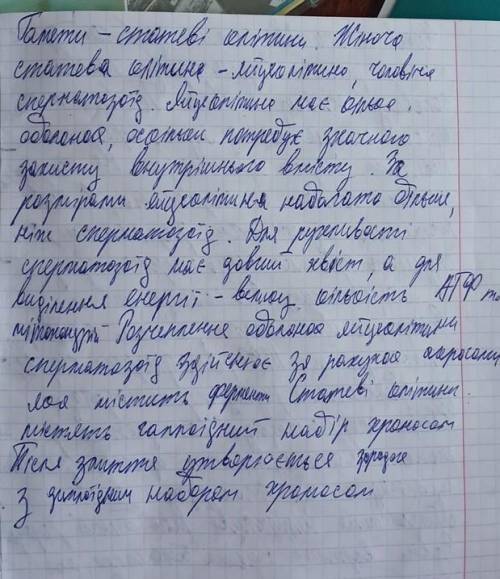 Гамети – статеві клітини. Жіноча
статева клітина – яйцеклітина, чоловіча
сперматозоїд. Яйцеклітина має кілька
оболонок, оскільки потребує значного
захисту внутрішнього вмісту. За
розмірами яйцеклітина набагато більше,
ніж сперматозоїд. Для рухливості
сперматозоїд має довгий хвіст, а для
виділення енергії – велику кількість АТФ та
мітохондрій. Розчеплення оболонок яйцеклітини
сперматозоїд здійснює за рахунок акросоми
яка містить ферменти Статеві клітини
містять гаплоїдний набір хромосом
Після злиття утворюється зародок
з диплоїдним набором хромосом